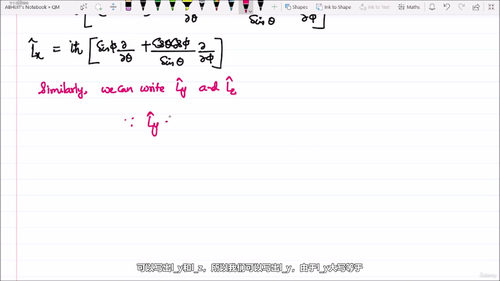 ABHIJIT's Notebook » QM
Shapes Ink to Shape Ink to Text Maths
∂θ Sinθ ∂ϕ ]
L̂x = iħ [ Sinϕ ∂/∂θ + CosθCosϕ/Sinθ ∂/∂ϕ ]
Similarly, we can write L̂y and L̂z
∵ L̂y
可以写出l_y和l_z，所以我们可以写出l_y，由于l_y大写等于